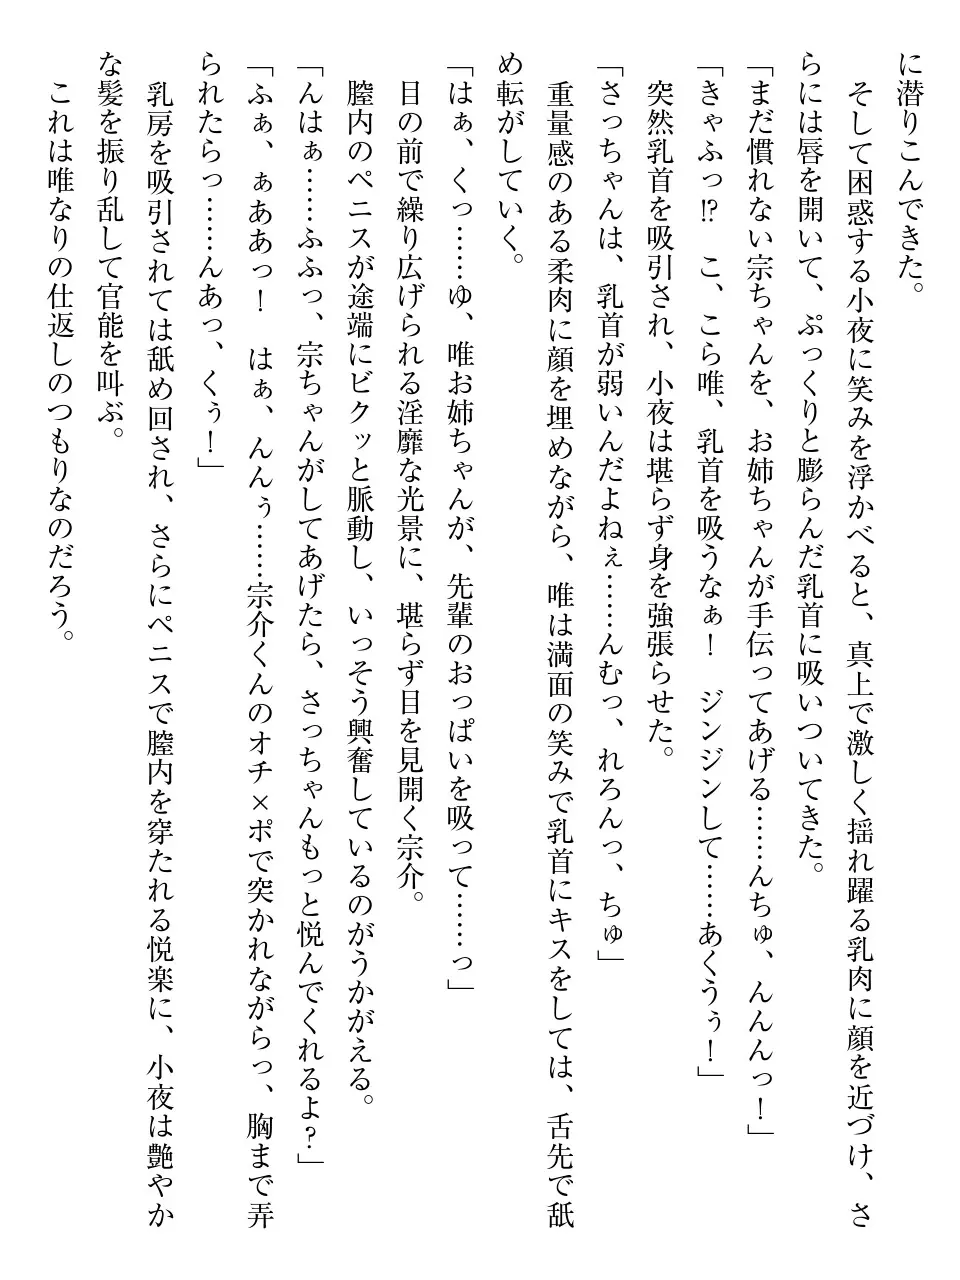 に潜りこんできた。
　そして困惑する小夜に笑みを浮かべると、真上で激しく揺れ躍る乳肉に顔を近づけ、さ
らには唇を開いて、ぷっくりと膨らんだ乳首に吸いついてきた。
「まだ慣れない宗ちゃんを、お姉ちゃんが手伝ってあげる……んちゅ、んんんっ！」
「きゃふっ⁉　こ、こら唯、乳首を吸うなぁ！　ジンジンして……あくうぅ！」
　突然乳首を吸引され、小夜は堪らず身を強張らせた。
「さっちゃんは、乳首が弱いんだよねぇ……んむっ、れろんっ、ちゅ」
　重量感のある柔肉に顔を埋めながら、唯は満面の笑みで乳首にキスをしては、舌先で舐
め転がしていく。
「はぁ、くっ……ゆ、唯お姉ちゃんが、先輩のおっぱいを吸って……っ」
　目の前で繰り広げられる淫靡な光景に、堪らず目を見開く宗介。
　膣内のペニスが途端にビクッと脈動し、いっそう興奮しているのがうかがえる。
「んはぁ……ふふっ、宗ちゃんがしてあげたら、さっちゃんもっと悦んでくれるよ？」
「ふぁ、ぁああっ！　はぁ、んんぅ……宗介くんのオチ×ポで突かれながらっ、胸まで弄
られたらっ……んあっ、くぅ！」
　乳房を吸引されては舐め回され、さらにペニスで膣内を穿たれる悦楽に、小夜は艶やか
な髪を振り乱して官能を叫ぶ。
　これは唯なりの仕返しのつもりなのだろう。